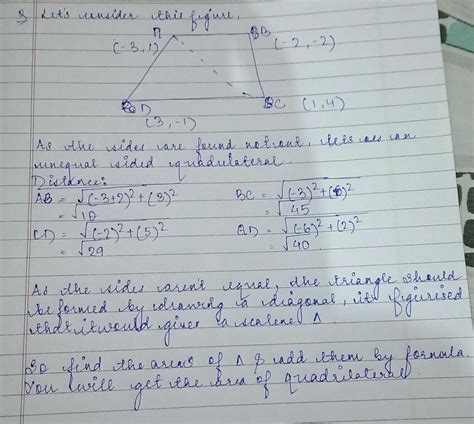 Let's consider this figure,
A B
(-3,1) (-2,-2)
D C (1,4)
(3,-1)
As the sides are found not
unequal sided quadrilateral.
Distance:
AB = √(-3+2)²+(3)² BC = √(-3)²+(6)²
= √10 = √45
CD = √(-2)²+(5)² AD = √(-6)²+(2)²
= √29 = √40
As the sides aren't equal, the triangle should
be formed by drawing a diagonal, it figurised
that it would given a scalene Δ.
So find the areas of Δ & add them by formula
You will get the area of quadrilateral.